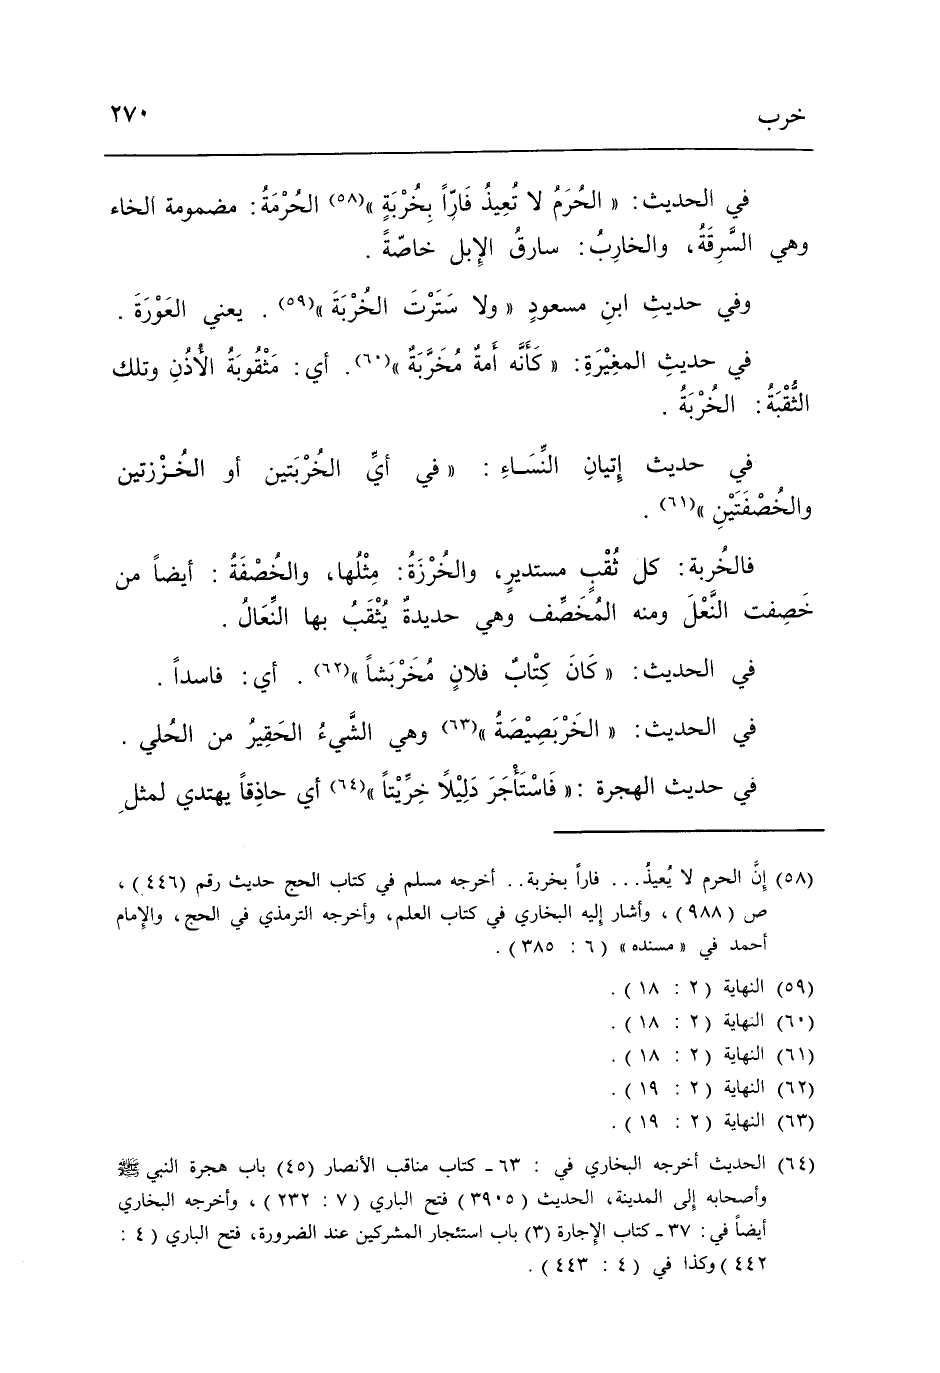 خرب
٢٧٠
في الحديث: « الحُرَمُ لا تُعِيذُ فَارّاً بِخُرْبَةٍ »(٥٨) الحُرْمَةُ: مضمومة الخاء
وهي السَّرِقَةُ، والخارِبُ: سارقُ الإِبل خاصّةً .
وفي حديثِ ابنِ مسعودٍ « ولا سَتَرْتَ الخُرْبَةَ »(٥٩) . يعني العَوْرَةَ .
في حديثِ المغِيْرَةِ: « كَأَنَّه أَمةٌ مُخَرَّبَةٌ »(٦٠). أي: مَثْقُوبَةُ الأُذُنِ وتلك
الثُّقْبَةُ: الخُرْبَةُ .
في حديث إِتيانِ النِّسَاءِ : « في أيِّ الخُرْبَتين أو الخُـرْزتين
والخُصْفَتَيْنِ »(٦١) .
فالخُربة: كل ثُقْبٍ مستديرٍ، والخُرْزَةُ: مِثْلُها، والخُصْفَةُ : أيضاً من
خَصِفت النَّعْلَ ومنه المُخَصِّف وهي حديدةٌ يُثْقَبُ بها النِّعَالُ .
في الحديث: « كَانَ كِتْابٌ فلانٍ مُخَرْبَشاً »(٦٢) . أي: فاسداً .
في الحديث: « الخَرْبَصِيْصَةُ »(٦٣) وهي الشَّيءُ الحَقِيرُ من الحُلي .
في حديث الهجرة :« فَاسْتَأْجَرَ دَلِيْلًا خِرِّيْتاً »(٦٤) أي حاذِقاً يهتدي لمثلِ
(٥٨) إنَّ الحرم لا يُعيذُ... فاراً بخربة.. أخرجه مسلم في كتاب الحج حديث رقم (٤٤٦) ،
ص (٩٨٨) ، وأشار إليه البخاري في كتاب العلم، وأخرجه الترمذي في الحج، والإِمام
أحمد في « مسنده » (٦ : ٣٨٥) .
(٥٩) النهاية (٢ : ١٨) .
(٦٠) النهاية (٢ : ١٨) .
(٦١) النهاية (٢ : ١٨) .
(٦٢) النهاية (٢ : ١٩) .
(٦٣) النهاية (٢ : ١٩) .
(٦٤) الحديث أخرجه البخاري في : ٦٣ـ كتاب مناقب الأنصار (٤٥) باب هجرة النبي ﷺ
وأصحابه إلى المدينة، الحديث (٣٩٠٥) فتح الباري (٧ : ٢٣٢) ، وأخرجه البخاري
أيضاً في: ٣٧ ـ كتاب الإِجارة (٣) باب استئجار المشركين عند الضرورة، فتح الباري (٤ :
٤٤٢) وكذا في (٤ : ٤٤٣) .